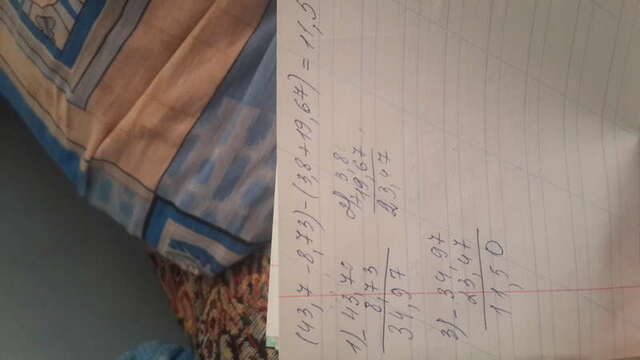 (43,7 - 8,73) - (3,8 + 19,67) = 11,5
1) - 43,70
8,73
34,97
2) + 3,8
19,67
23,47
3) - 34,97
23,47
11,50